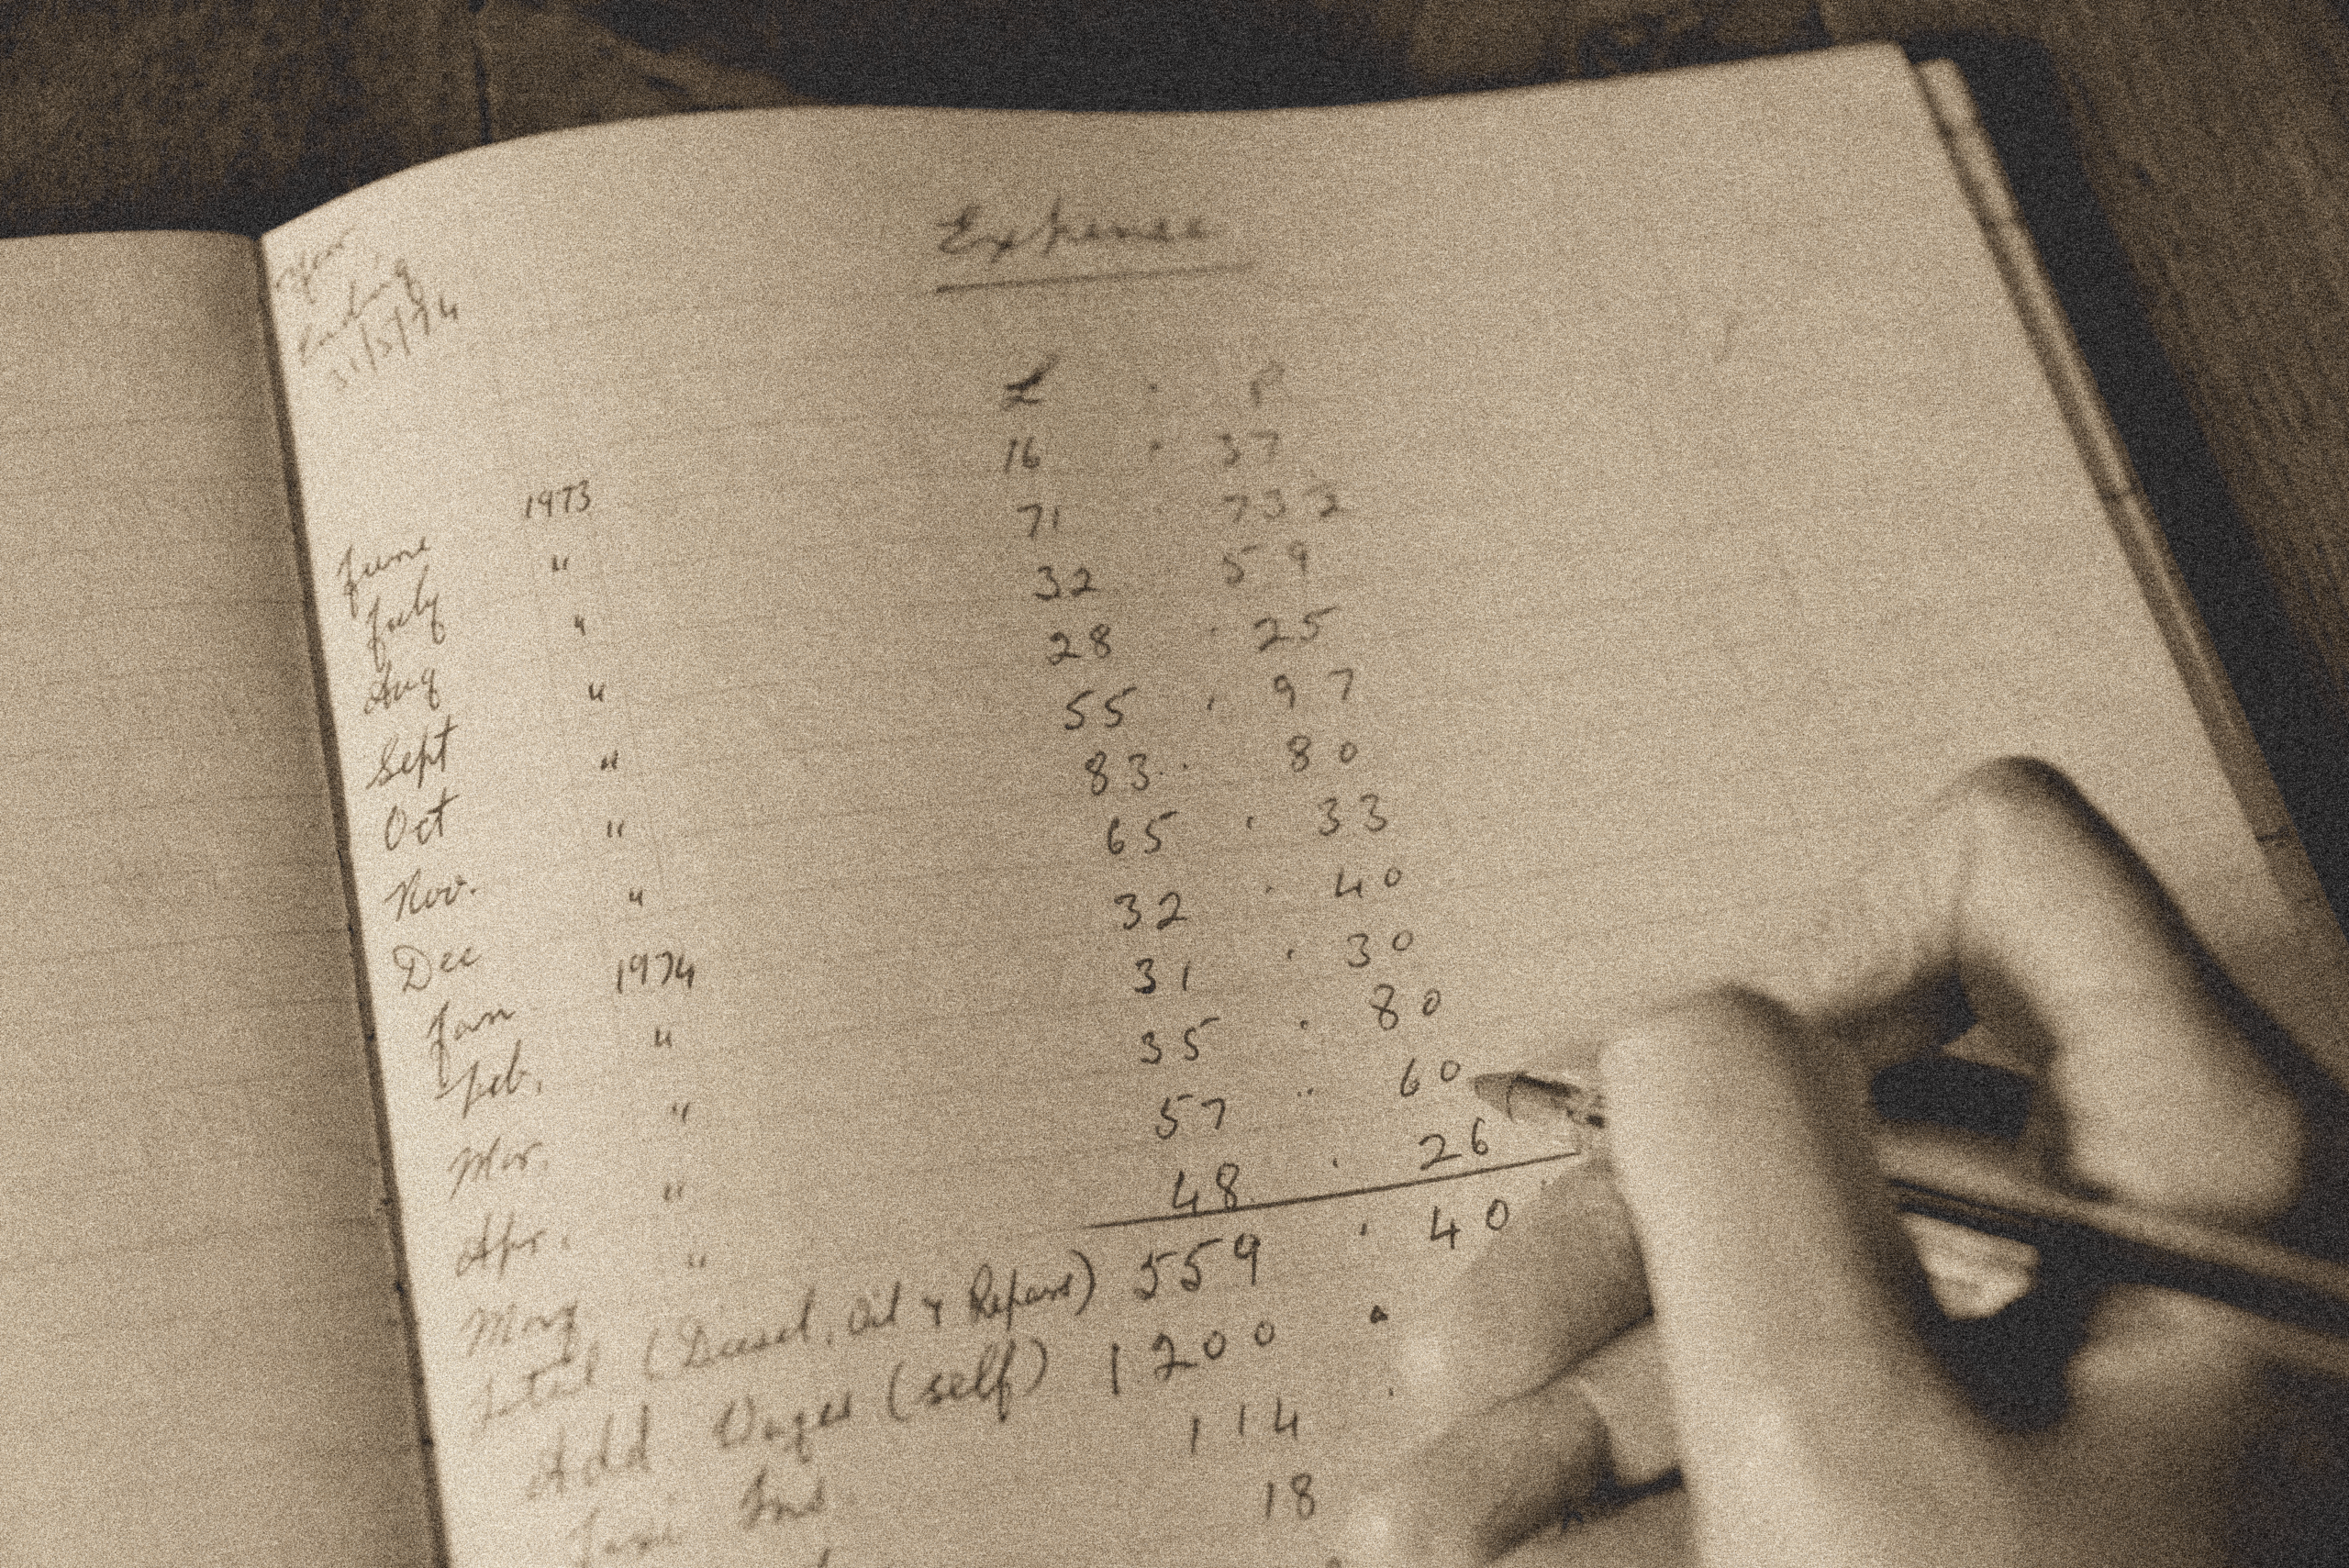 Year
Ending
31/5/74
Expense
£ . P
June 1973 16 . 37
July " 71 . 73 2
Aug " 32 59
Sept " 28 . 25
Oct " 55 . 97
Nov. " 83 . 80
Dec " 65 . 33
Jan 1974 32 . 40
Feb. " 31 . 30
Mar. " 35 . 80
Apr. " 57 . 60
May " 48 . 26
Total (Diesel, Oil & Repairs) 559 . 40
Add Wages (self) 1200 .
Taxi Ins. 114 .
18